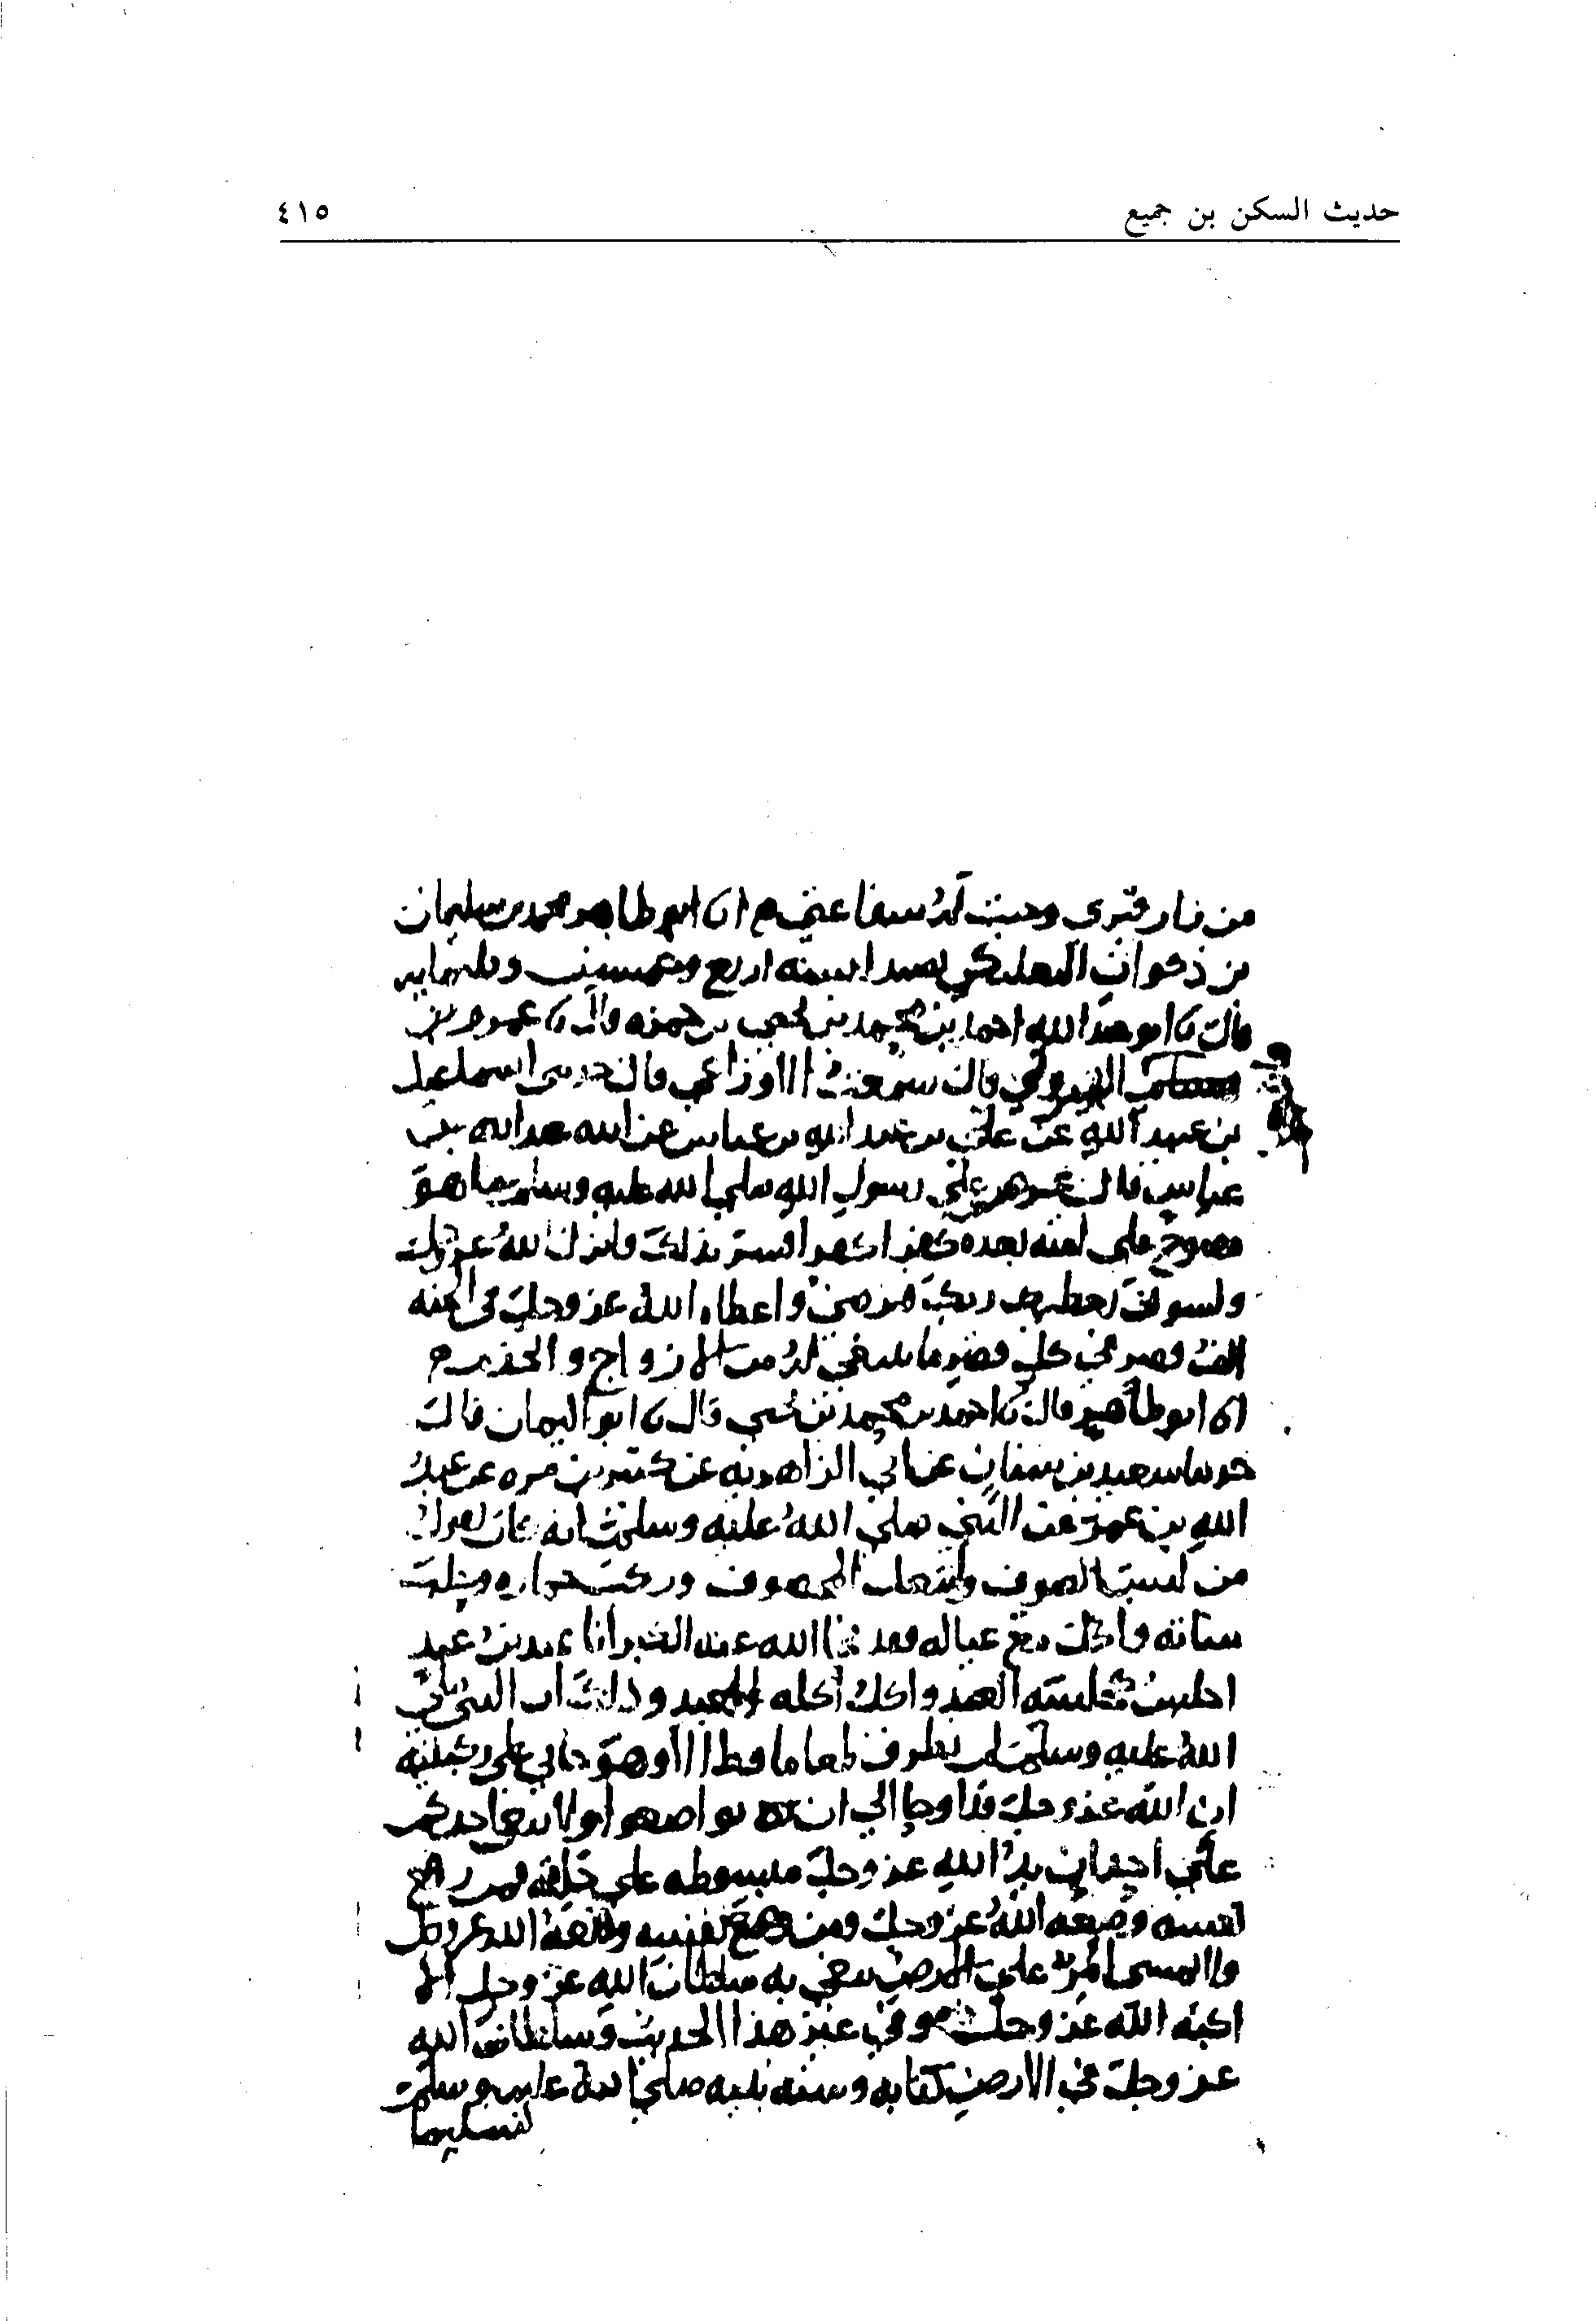 حديث السكن بن جميع ٤١٥
من زار قبري وجبت له شفاعتي ابو طاهر محمد بن سليمان
بن ذكوان البعلبكي بصيدا سنه اربع وخمسين وثلثمايه
قال ابو عبد الله احمد بن محمد بن يحيى بن حمزه قال عمرو بن
البيروتي قال سمعت الاوزاعي قال حدثني اسماعيل
بن عبيد الله عن علي بن عبد الله بن عباس عن ابيه عبد الله بن
عباس قال عرض علي رسول الله صلى الله عليه وسلم ما هو
مفتوح على امته بعده كفرا كفرا فسر بذلك فانزل الله عز وجل
ولسوف يعطيك ربك فترضى واعطاه الله عز وجل في الجنه
الف قصر في كل قصر ما ينبغي له من الازواج والخدم
ابو طاهر قال احمد بن محمد بن يحيى قال ابو اليمان قال
سعيد بن سنان عن ابي الزاهريه عن كثير بن مره عن عبد
الله بن عمر عن النبي صلى الله عليه وسلم انه كان يقول
من لبس الصوف وانتعل المخصوف وركب حماره وحلب
شاته واكل مع عياله فقد نحا الله عنه الكبر انا عبد بن عبد
اجلس جلسة العبد واكل اكله العبد وذلك ان النبي صلى
الله عليه وسلم لم طعاما قط الا وهو جاثي على ركبتيه
ان الله عز وجل قد اوحا الي ان تواضعوا ولا يبغي احدكم
على احد ان يد الله عز وجل مبسوطه على خلقه فمن رفع
نفسه وضعه الله عز وجل ومن وضع نفسه رفعه الله عز وجل
ولا يمشي امرء على الارض يبغي به سلطان الله عز وجل الا
اكبه الله عز وجل وفي غير هذا الحديث وسلطان الله
عز وجل في الارض كتابه وسنه نبيه صلى الله عليه وسلم
تسليما